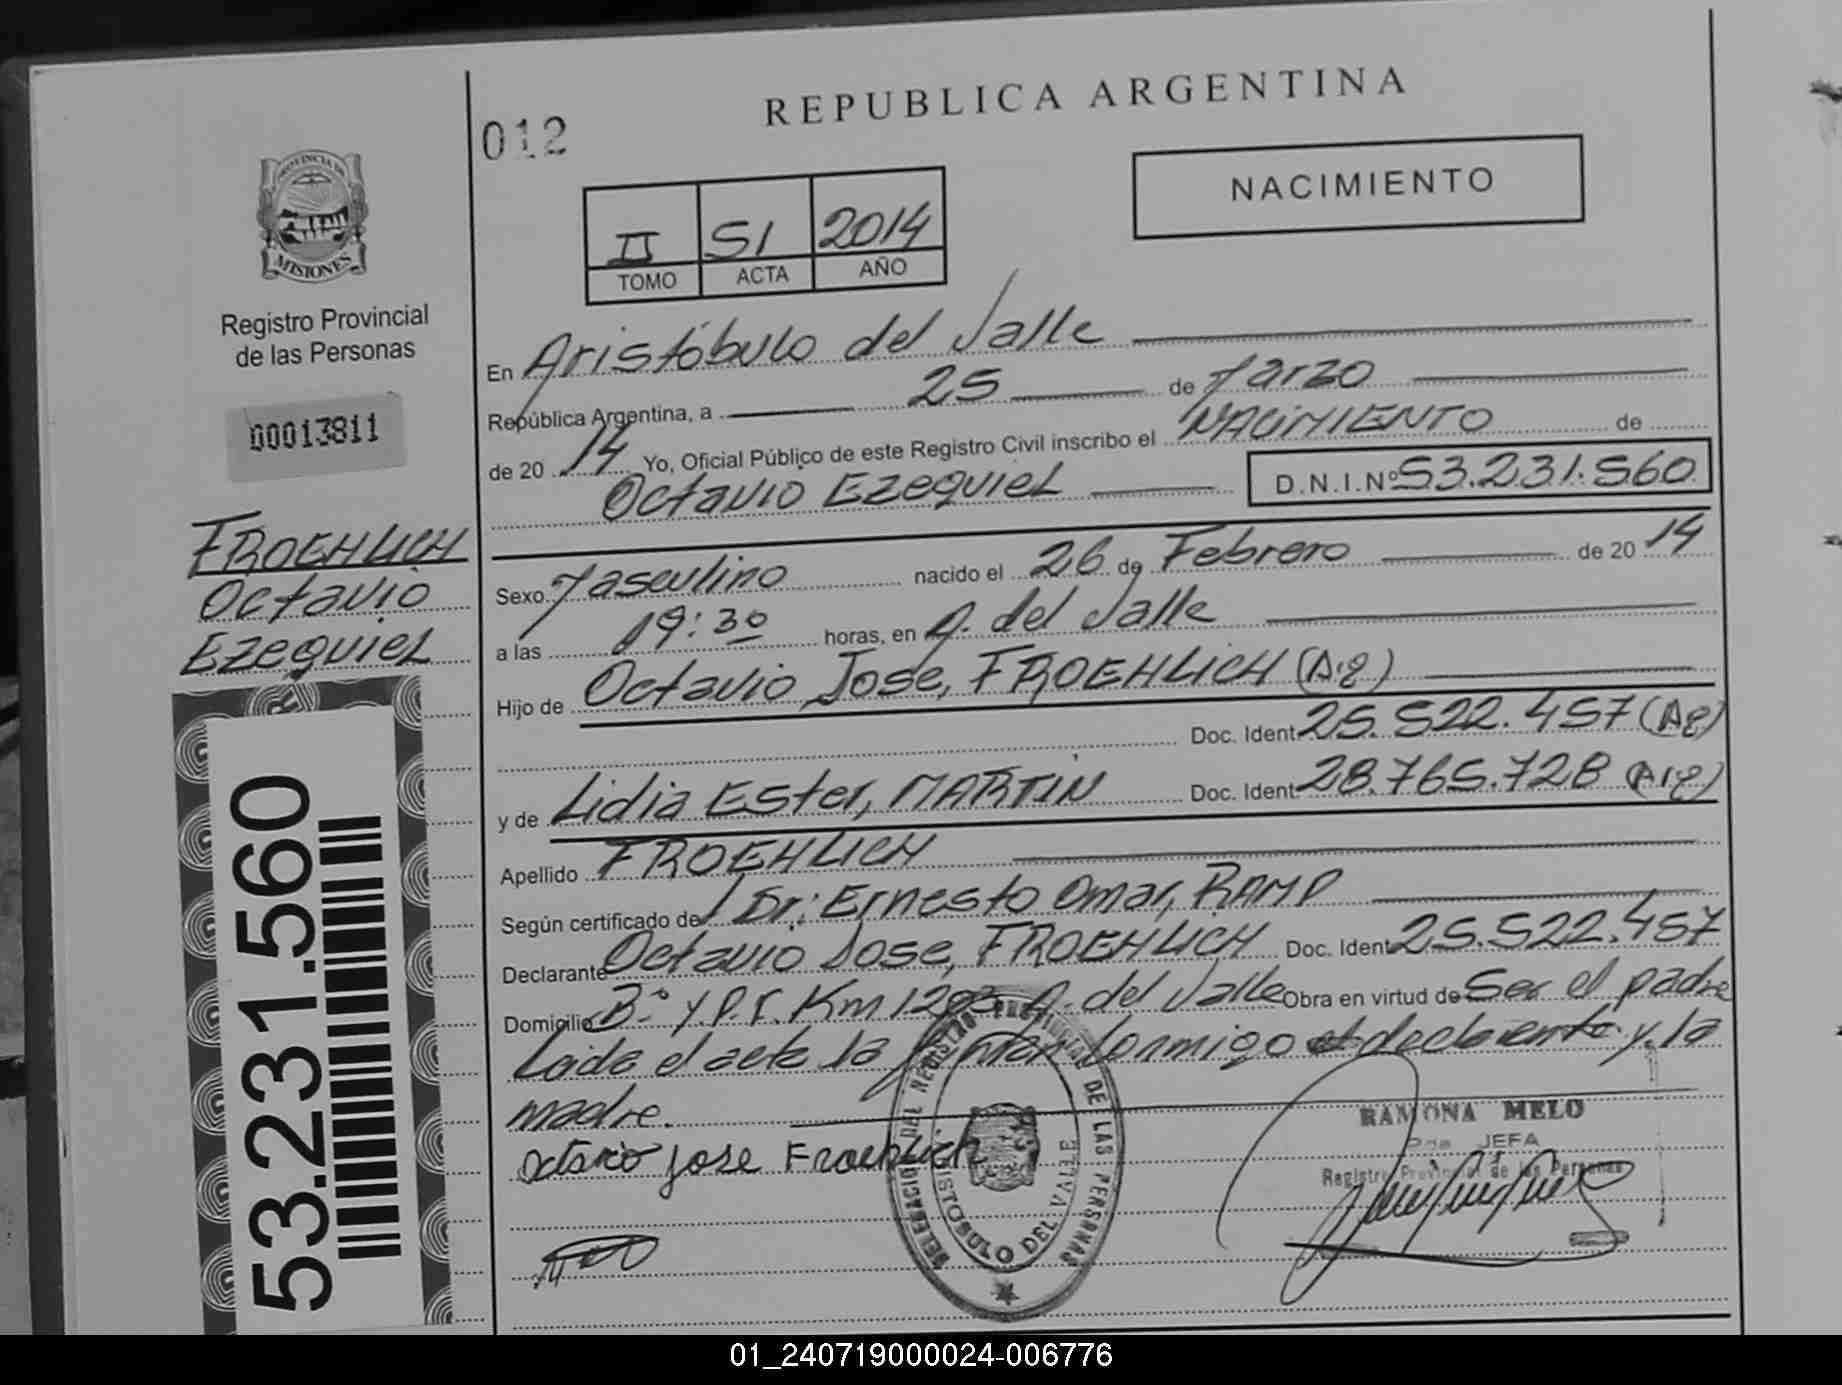 REPUBLICA ARGENTINA
012
NACIMIENTO
PROVINCIA DE
MISIONES
II 51 2014
TOMO ACTA AÑO
Registro Provincial
de las Personas
00013811
En Aristóbulo del Valle
República Argentina, a 25 de Marzo
de 20 14 Yo, Oficial Público de este Registro Civil inscribo el NACIMIENTO de
Octavio Ezequiel D.N.I.Nº 53.231.560
FROEHLICH
Octavio
Ezequiel
Sexo Masculino nacido el 26 de Febrero de 20 14
a las 19:30 horas, en A. del Valle
Hijo de Octavio José, FROEHLICH (Ag)
Doc. Ident 25.522.457 (Ag)
y de Lidia Ester, MARTIN Doc. Ident 28.765.728 (Ag)
Apellido FROEHLICH
Según certificado del Dr: Ernesto Omar, RAMP
Declarante Octavio José, FROEHLICH Doc. Ident 25.522.457
Domicilio Bº y P.F. Km 1293 A. del Valle Obra en virtud de Ser el padre
Leída el acta la firman conmigo el declarante y la
madre.
Octavio José Froehlich
RAMONA MELO
JEFA
Registro Provincial de las Personas
DELEGACION DEL REGISTRO PROVINCIAL DE LAS PERSONAS
ARISTOBULO DEL VALLE
53.231.560
01_240719000024-006776